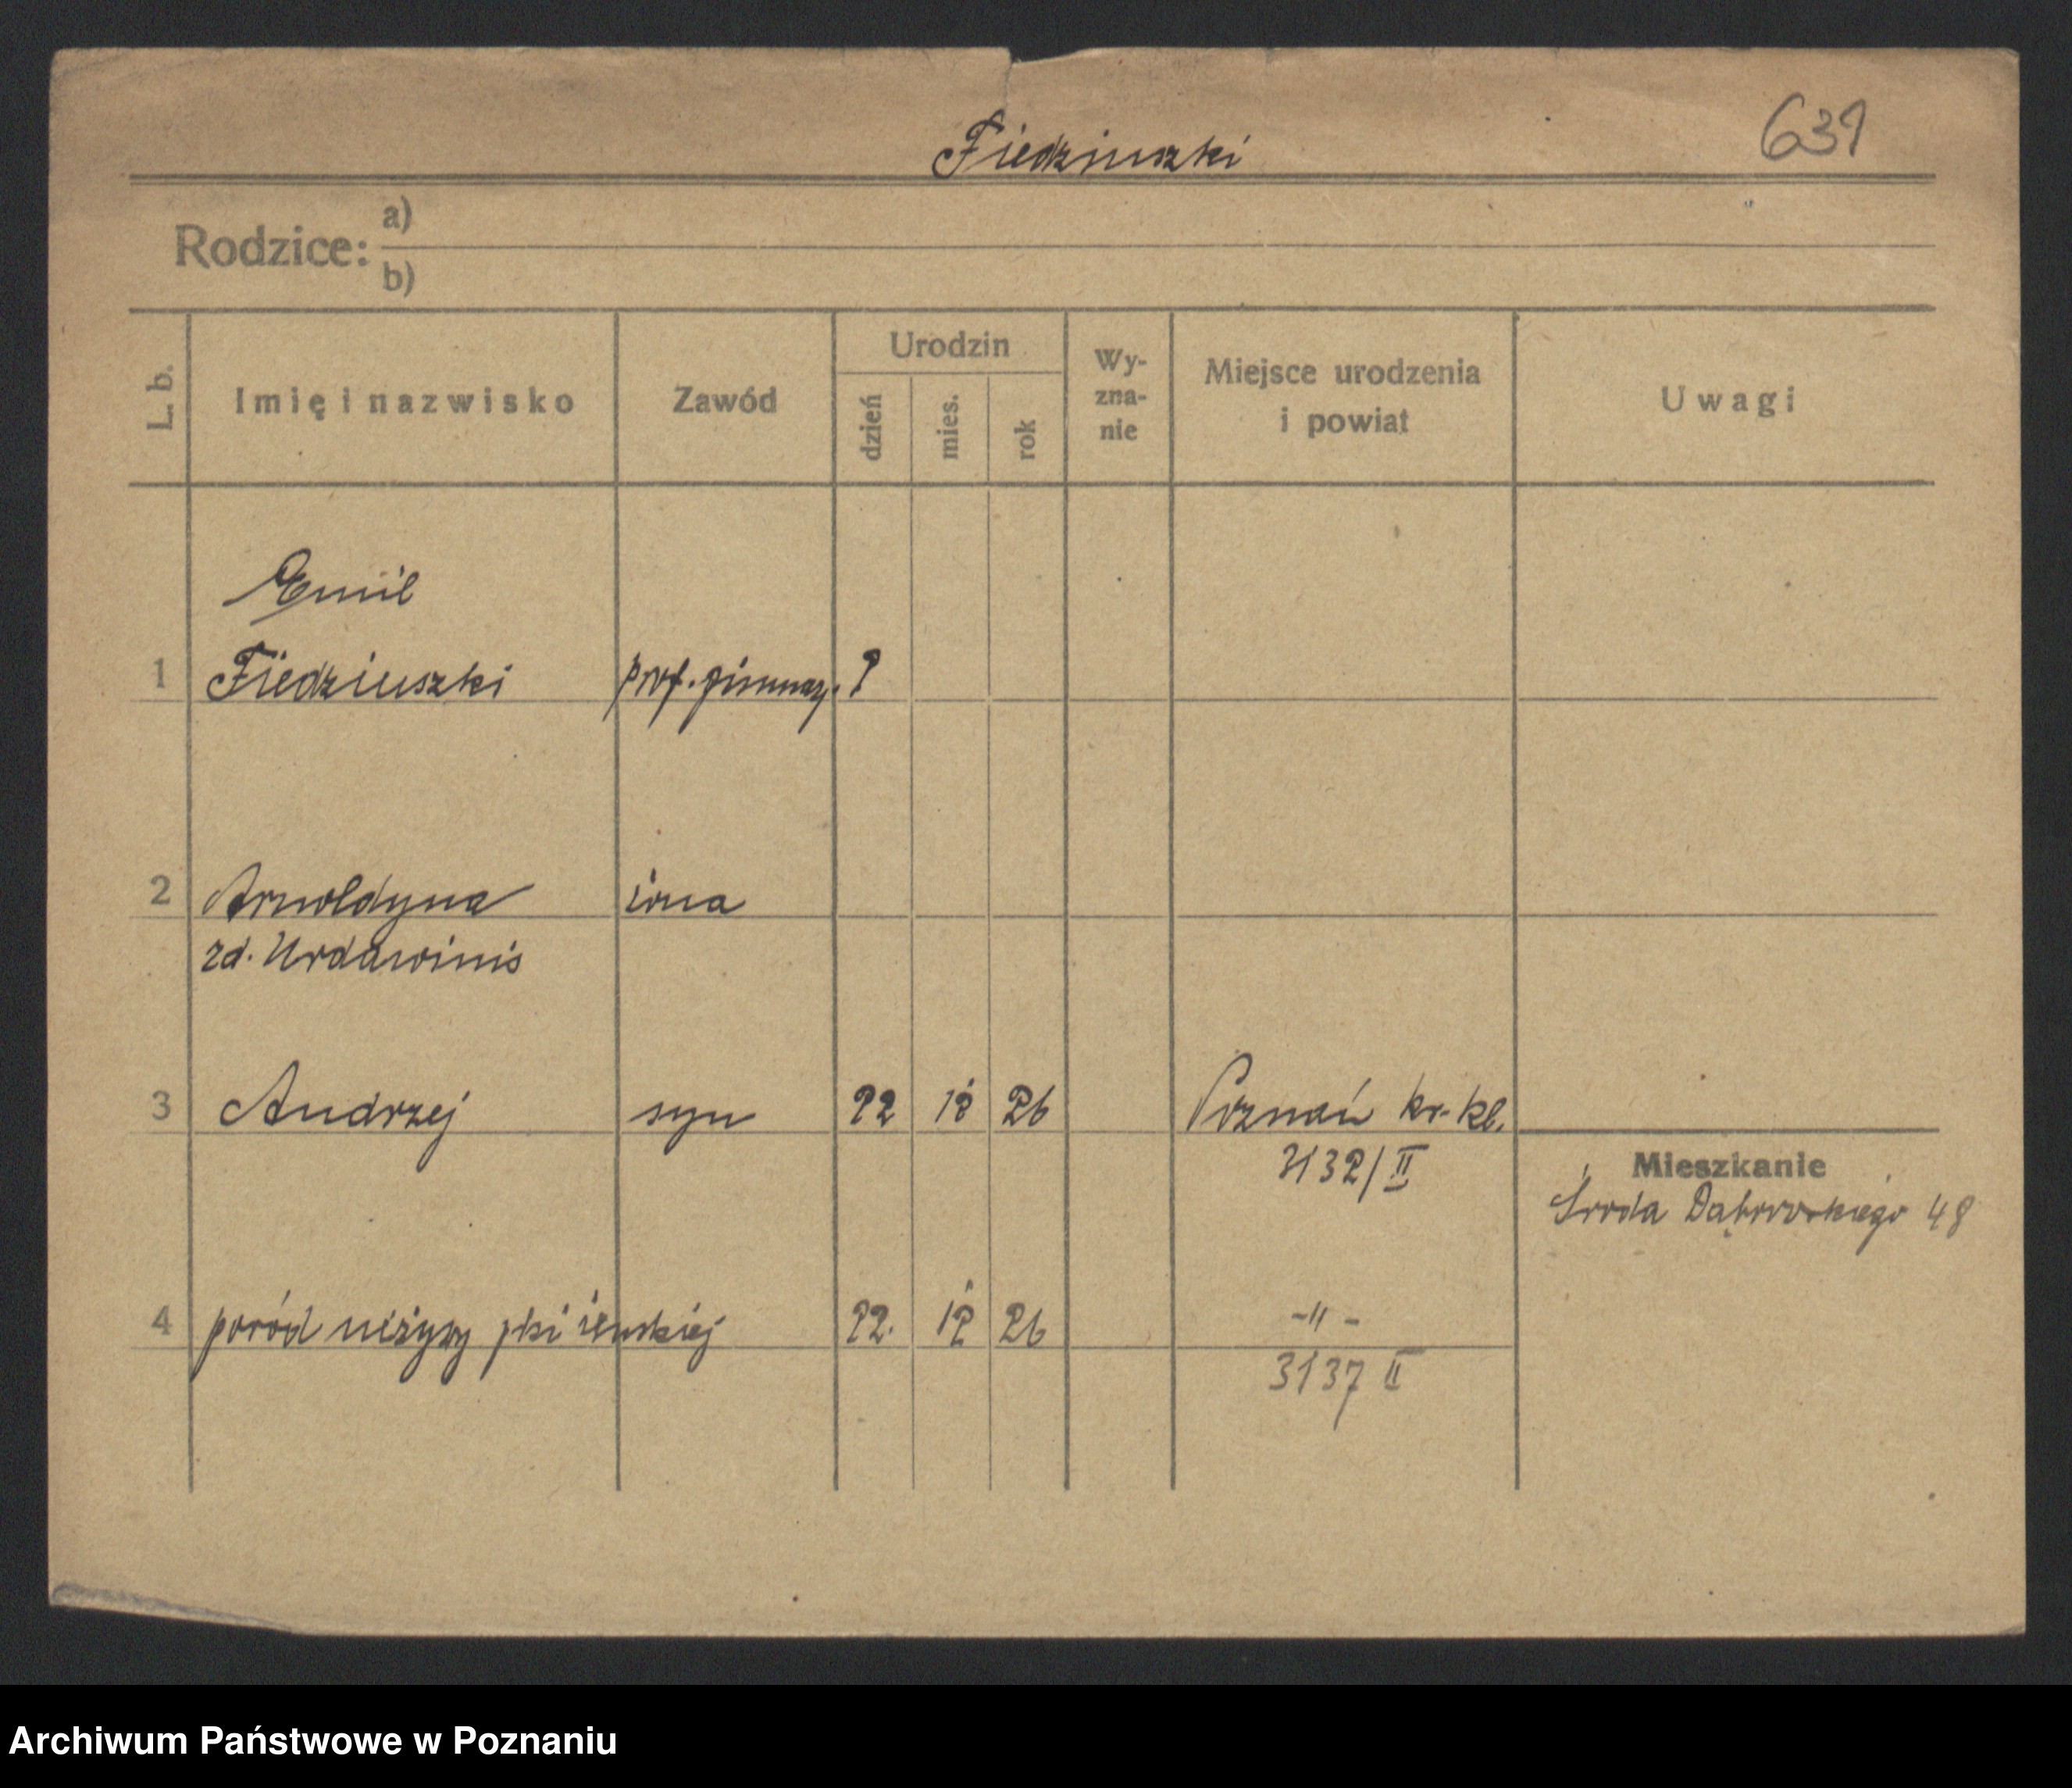 Fiedziuszki
631
Rodzice: a)
b)
L. b.
Imię i nazwisko
Zawód
Urodzin
dzień
mies.
rok
Wy-
zna-
nie
Miejsce urodzenia
i powiat
Uwagi
Emil
1 Fiedziuszki prof. gimnaz. ?
2 Arnoldyna żona
zd. Urdawinis
3 Andrzej syn 22 12 26 Poznań kr. kl.
3132/II
Mieszkanie
Środa Dąbrowskiego 48
4 poród nieżywy płci żeńskiej 22. 12 26 -"-
3137 II
Archiwum Państwowe w Poznaniu